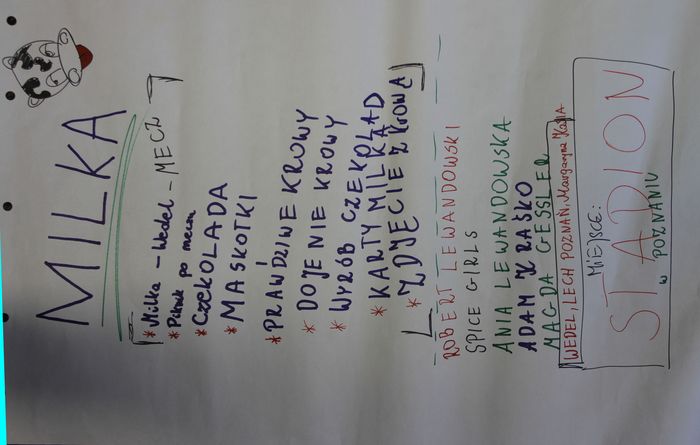 MILKA
* Milka - Wedel - MECZ
* Piknik po meczu
* CZEKOLADA
* MASKOTKI
* PRAWDZIWE KROWY
* DOJENIE KROWY
* WYRÓB CZEKOLAD
* KARTY MILKA
* ZDJĘCIE Z KROWĄ
ROBERT LEWANDOWSKI
SPICE GIRLS
ANIA LEWANDOWSKA
ADAM KRAŚKO
MAGDA GESSLER
WEDEL, LECH POZNAŃ, Margaryna Kasia
MIEJSCE:
STADION
W POZNANIU